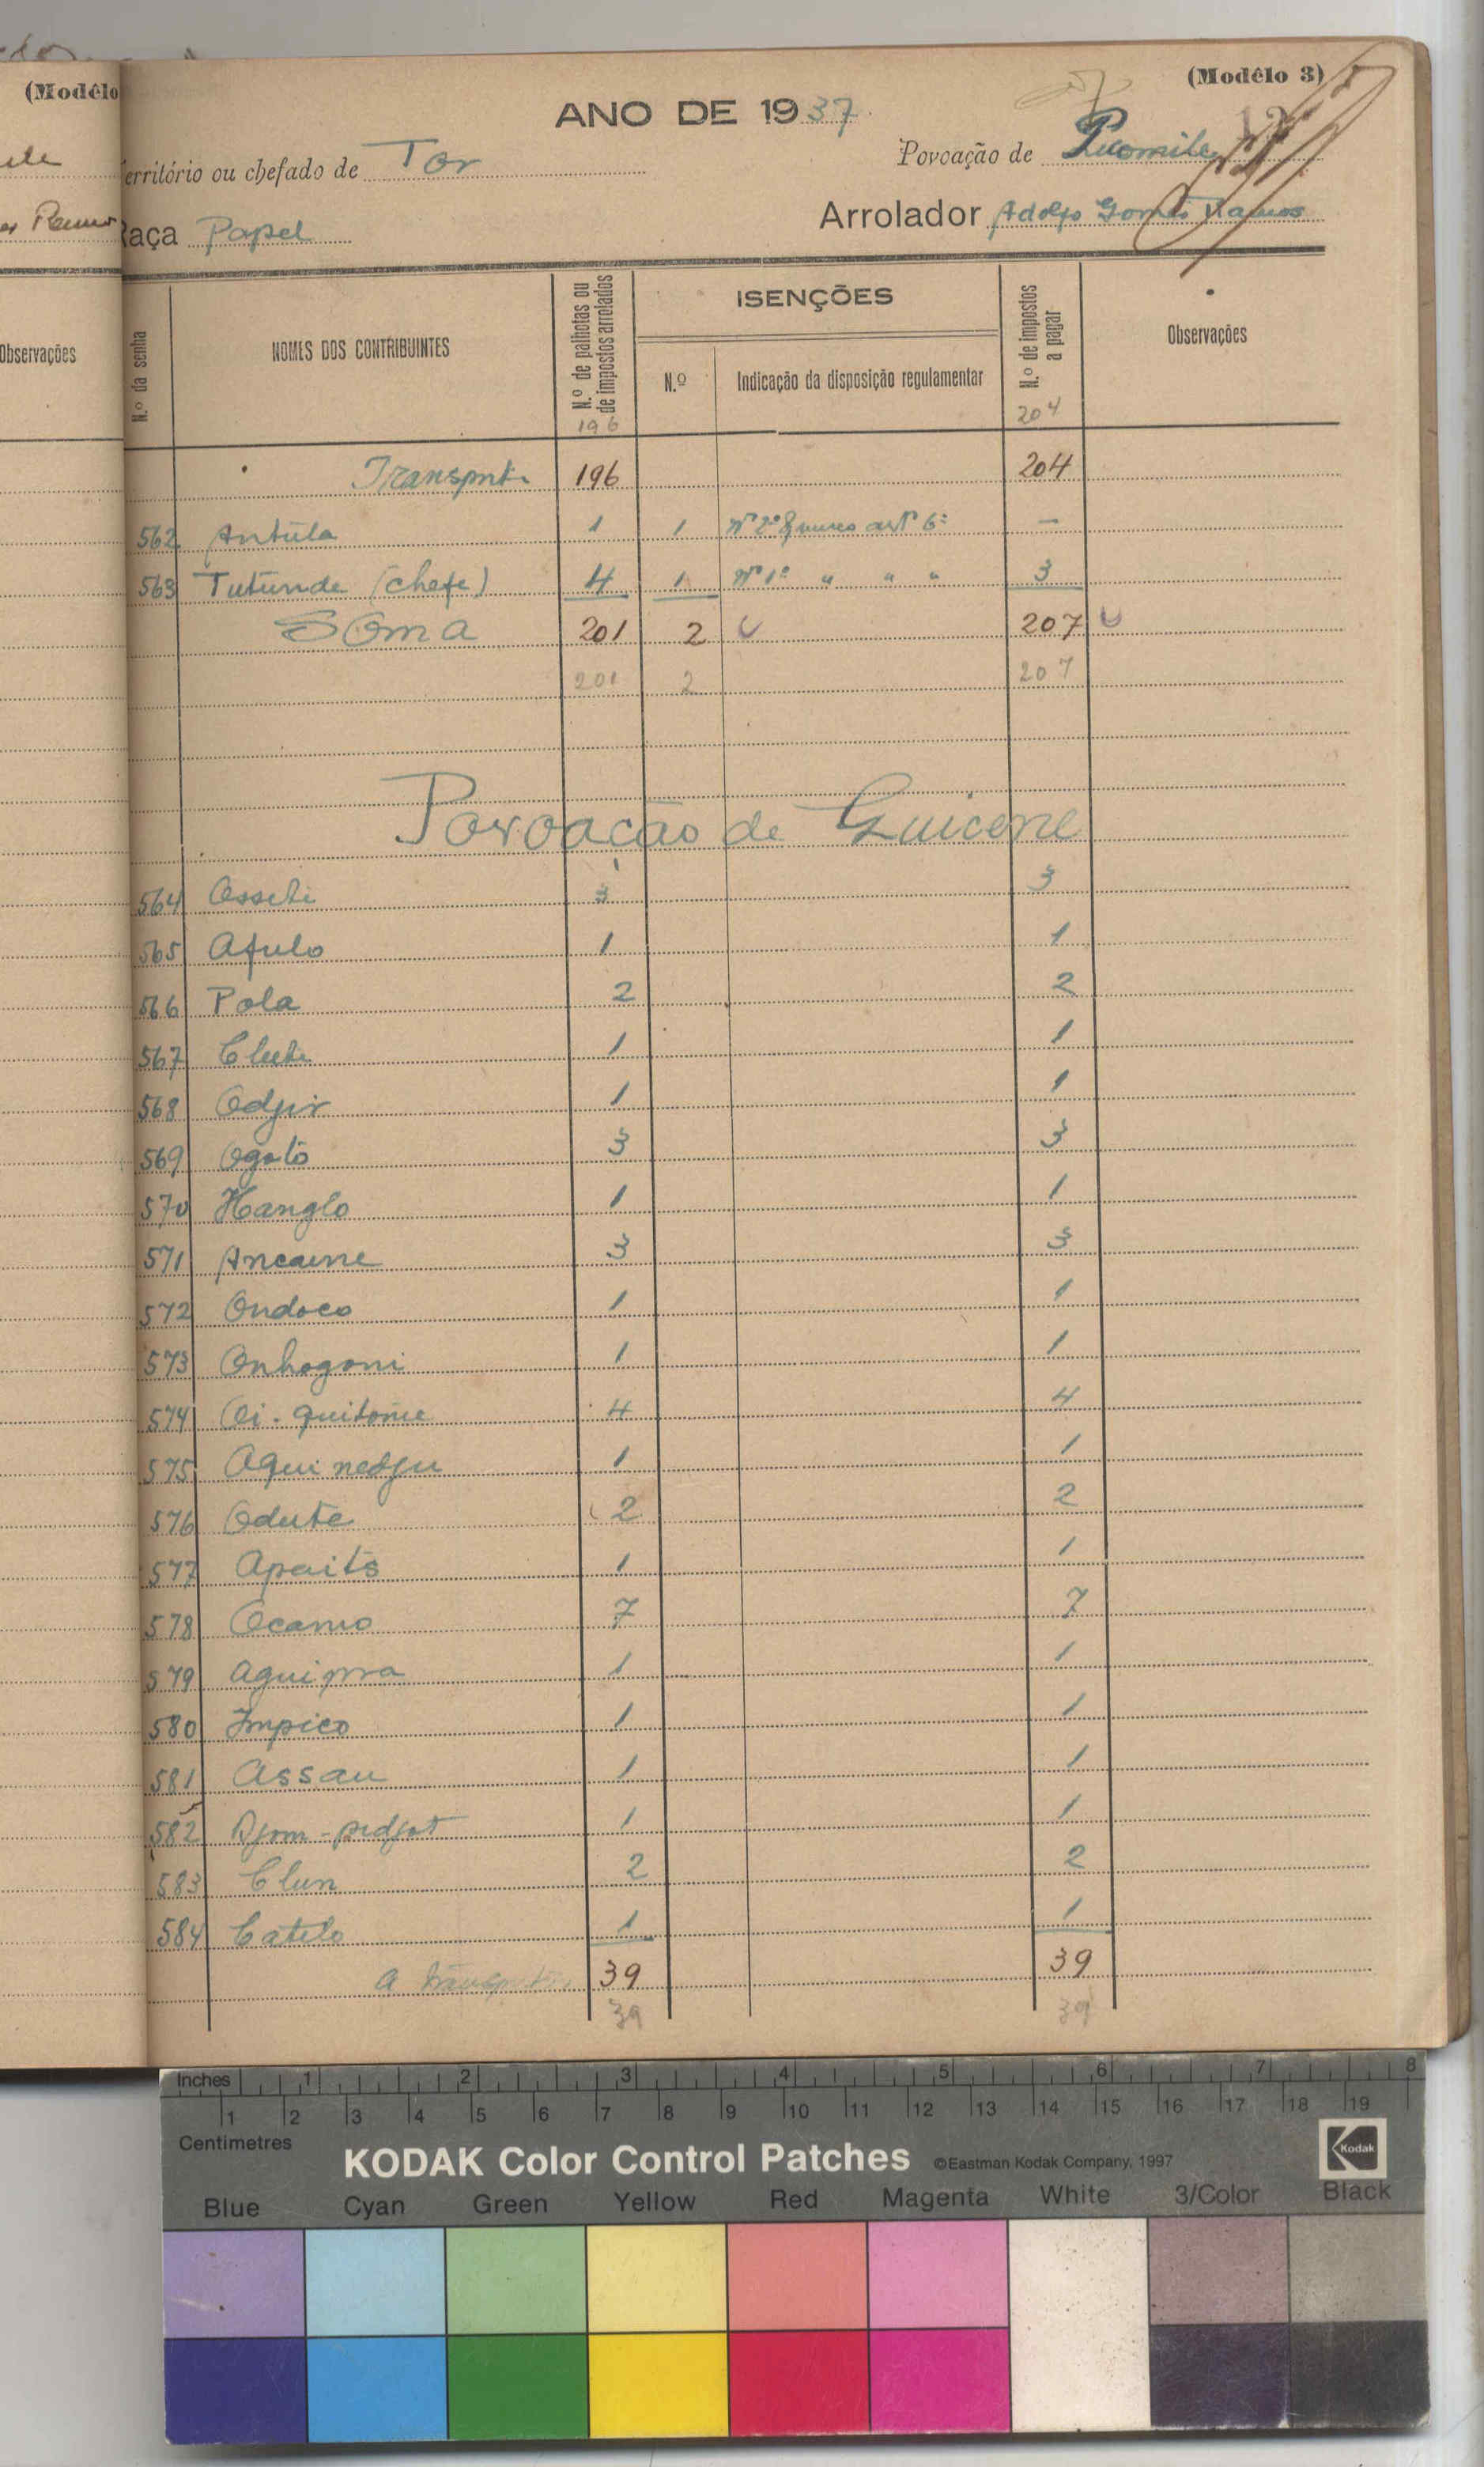 (Modêlo
(Modêlo 3)
ANO DE 1937
erritório ou chefado de Tor
Povoação de
Raça Papel
Arrolador Adolfo Gomes Ramos
Observações
N.º da senha
NOMES DOS CONTRIBUINTES
N.º de palhotas ou de impostos arrolados
ISENÇÕES
N.º
Indicação da disposição regulamentar
N.º de impostos a pagar
Observações
196 204
Transporte 196 204
562 Antúla 1 1 Nº 2º artº 6º —
563 Tutúnde (chefe) 4 1 Nº 1º " " " 3
Soma 201 2 207
201 2 207
Povoação de Guicene
564 3 3
565 Afulo 1 1
566 Pola 2 2
567 1 1
568 Odjir 1 1
569 Ogató 3 3
570 Hanglo 1 1
571 Ancaine 3 3
572 Ondoco 1 1
573 Onhogoni 1 1
574 4 4
575 Aquinedju 1 1
576 Odute 2 2
577 Apaitó 1 1
578 Ocanio 7 7
579 1 1
580 Impico 1 1
581 Assau 1 1
582 1 1
583 Clun 2 2
584 Catelo 1 1
A transportar 39 39
39 39
Inches 1 2 3 4 5 6 7 8
1 2 3 4 5 6 7 8 9 10 11 12 13 14 15 16 17 18 19
Centimetres
KODAK Color Control Patches ©Eastman Kodak Company, 1997 Kodak
Blue Cyan Green Yellow Red Magenta White 3/Color Black